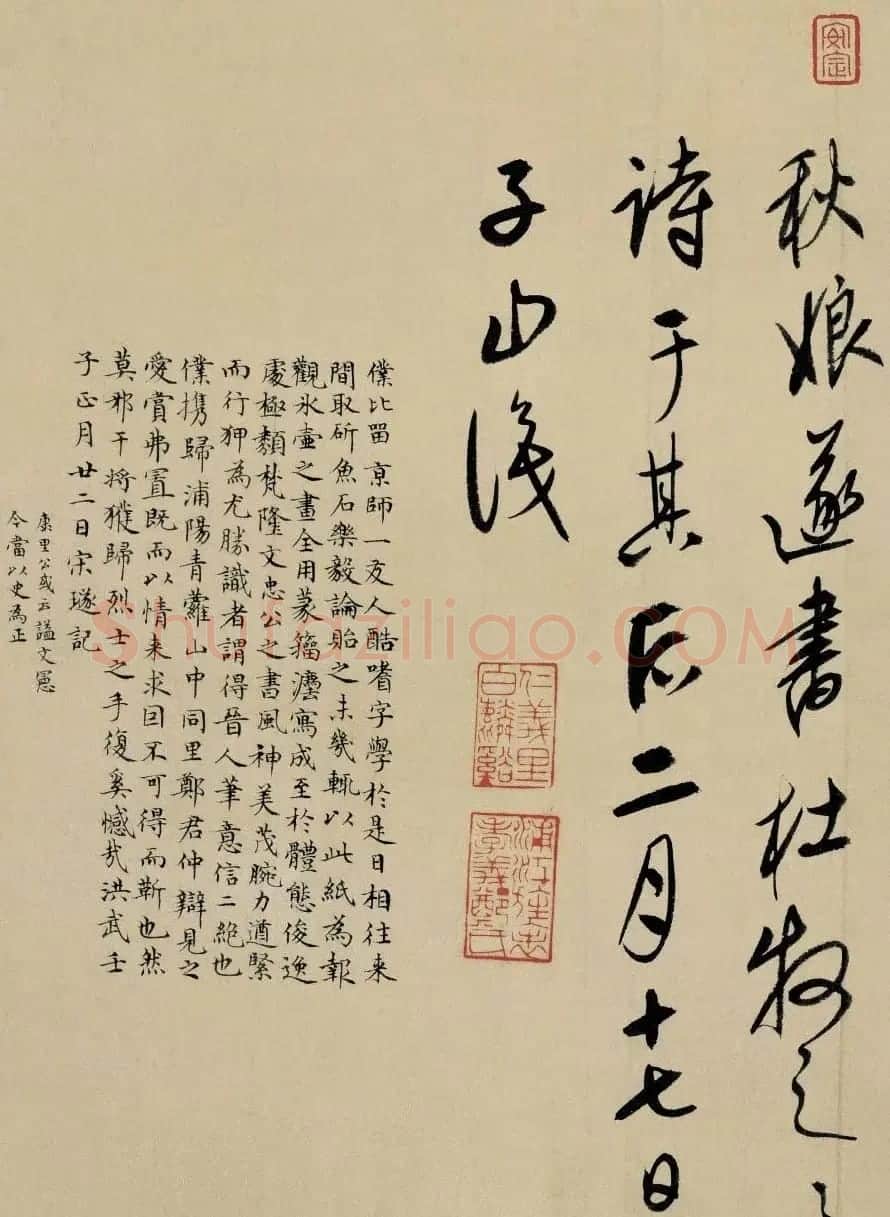 秋娘遂書杜牧之
詩于其后二月十七日
子山識
僕比留京師一友人酷嗜字學於是日相往来
間取斫魚石樂毅論貽之未幾輒以此紙為報
觀氷壷之畫全用篆籀灋寫成至於體態俊逸
處極類梵隆文忠公之書風神美茂腕力遒緊
而行狎為尤勝識者謂得晉人筆意信二絶也
僕携歸浦陽青蘿山中同里鄭君仲辯見之
愛賞弗置既而以情来求固不可得而靳也然
莫邪干将獲歸烈士之手復奚憾㢤洪武壬
子正月廿二日宋璲記
康里公或云謚文憲
今當以史為正
安定
仁義里
白麟谿
浦江旌忠
孝義鄭氏
Shufaziliao.COM